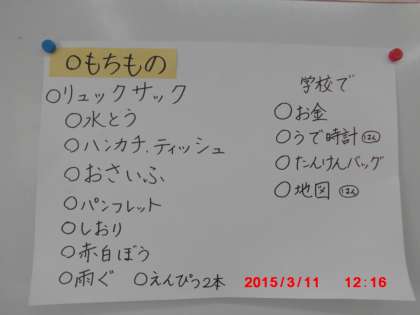 ○もちもの
○リュックサック
○水とう
○ハンカチ、ティッシュ
○おさいふ
○パンフレット
○しおり
○赤白ぼう
○雨ぐ ○えんぴつ2本
学校で
○お金
○うで時計 はん
○たんけんバッグ
○地図 はん
2015/3/11 12:16